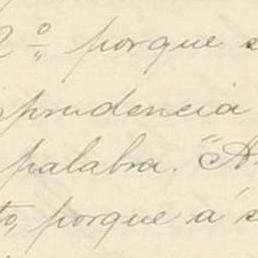 2º porque s
sprudencia
palabra. "A
to, porque a s